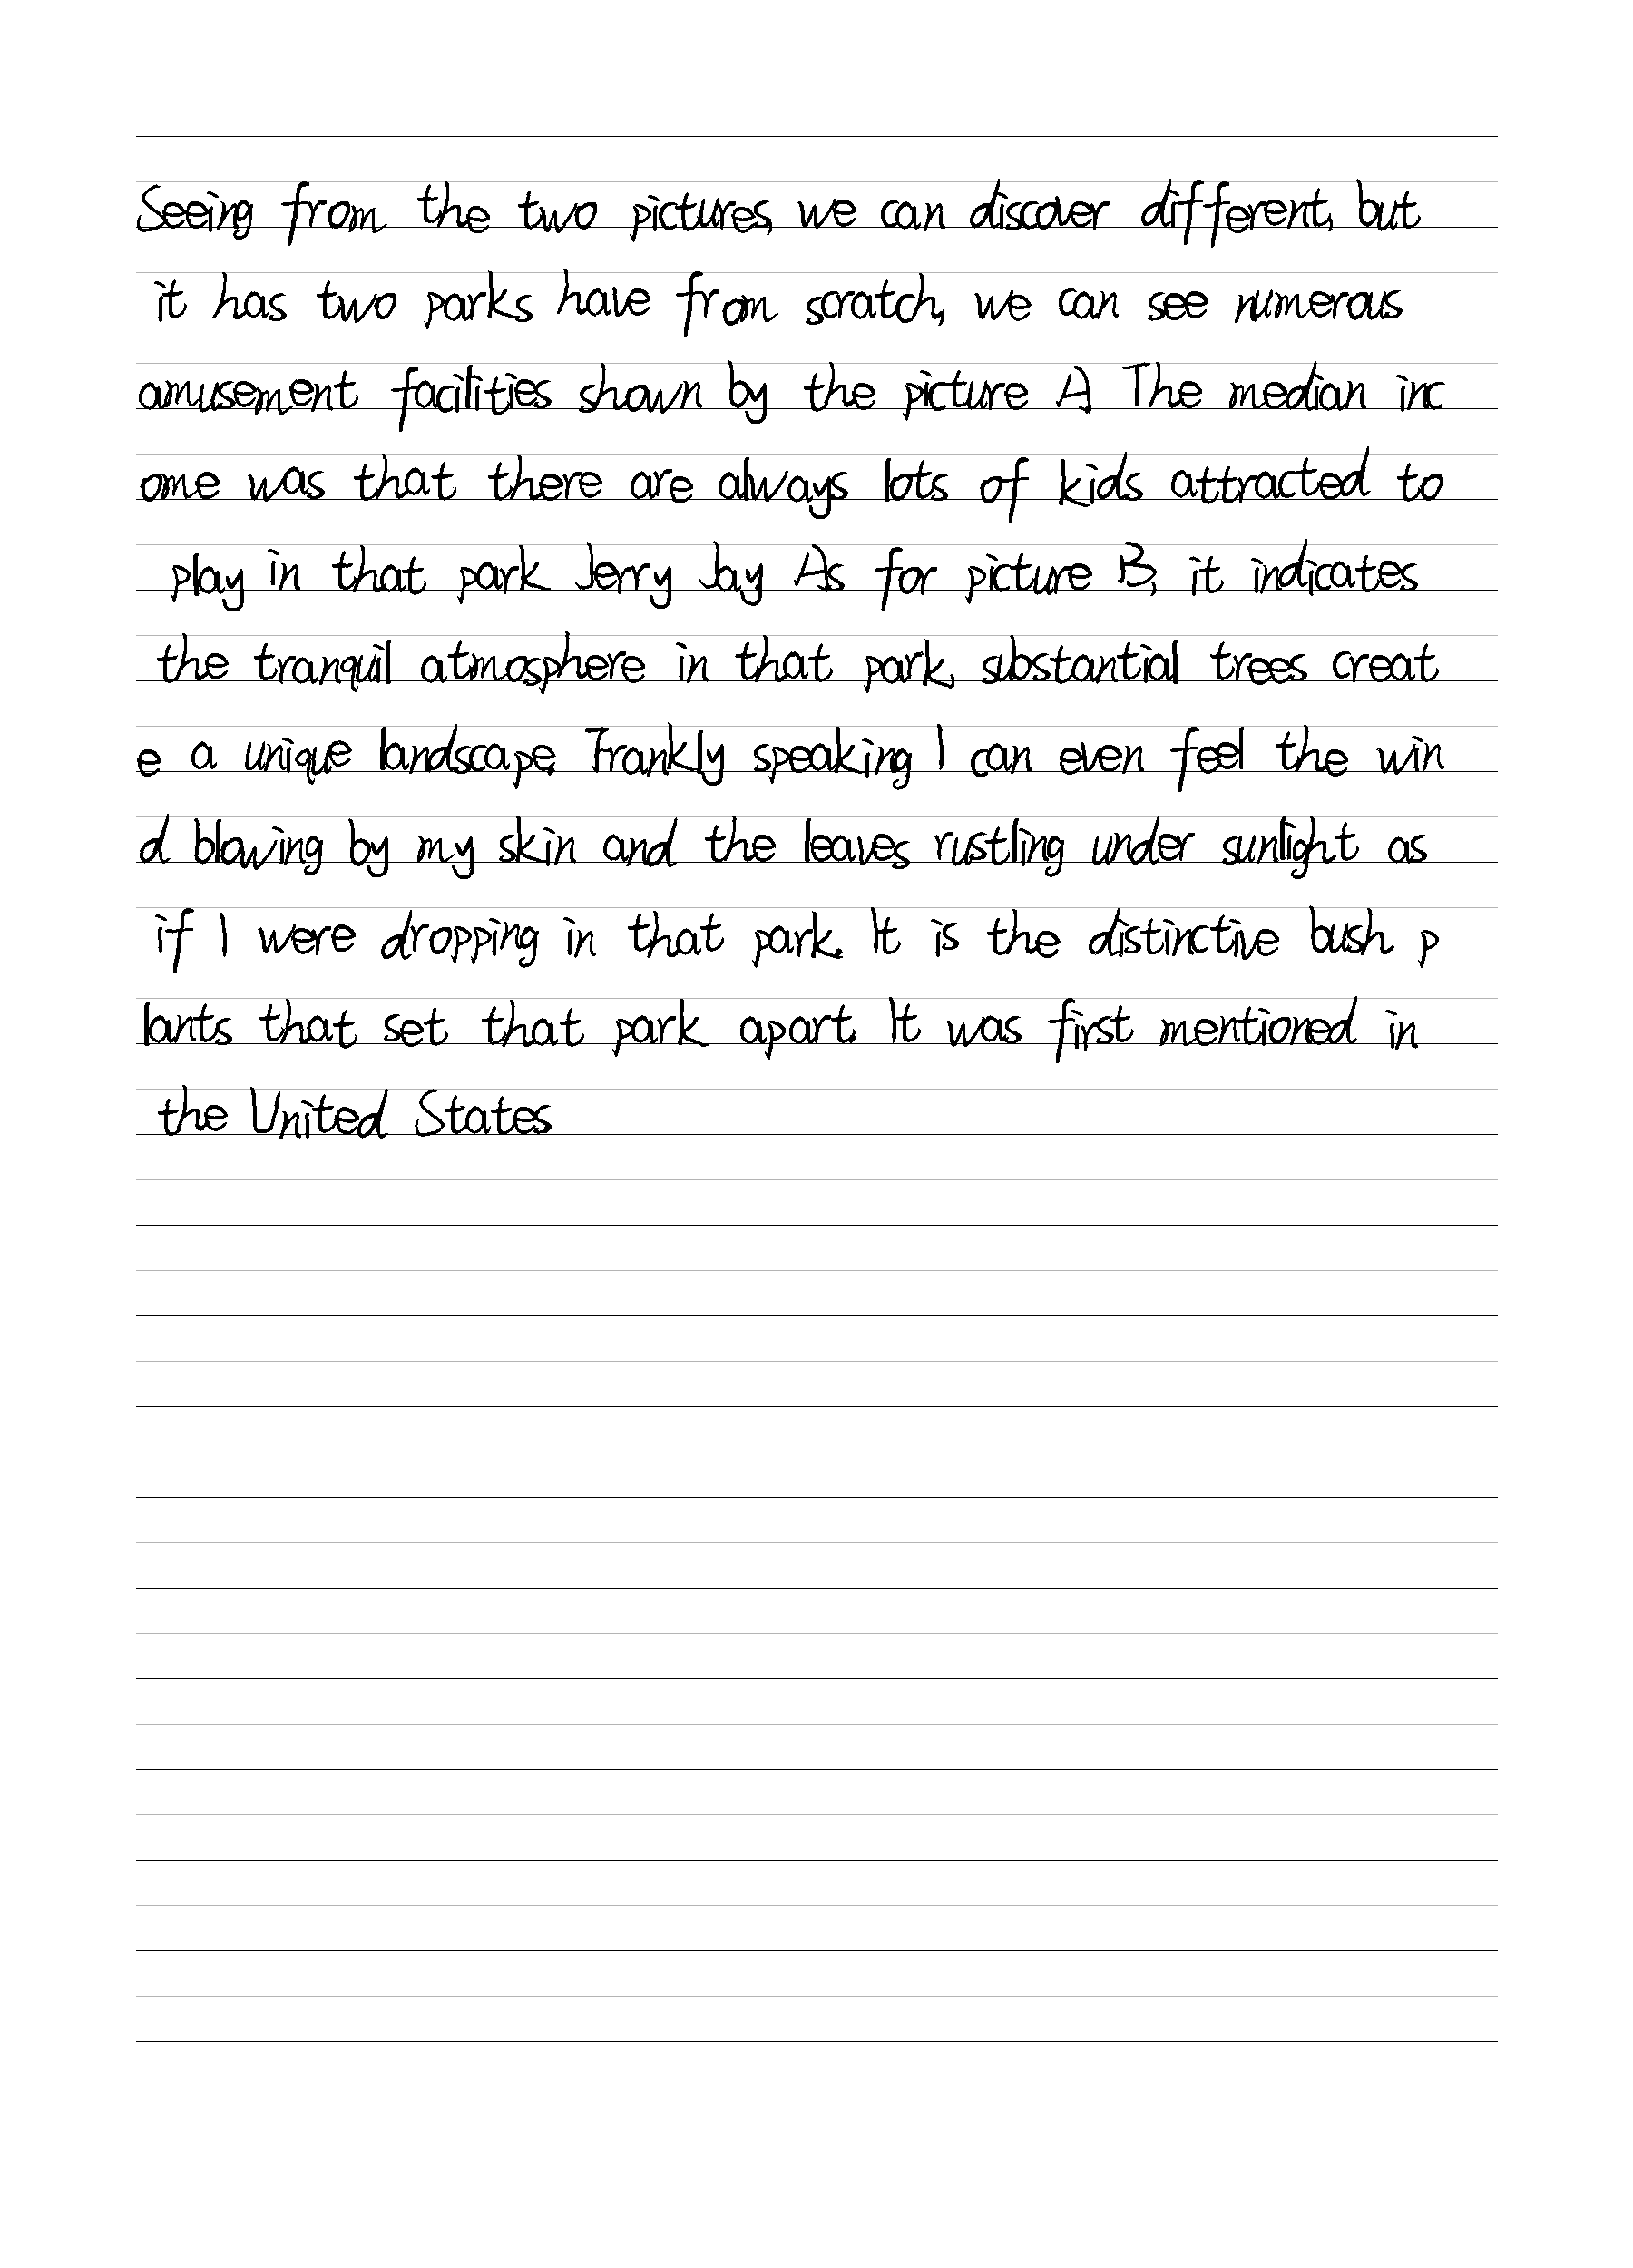 Seeing from the two pictures, we can discover different, but
it has two parks have from scratch, we can see numerous
amusement facilities shown by the picture A The median inc
ome was that there are always lots of kids attracted to
play in that park Jerry Jay As for picture B, it indicates
the tranquil atmosphere in that park, substantial trees creat
e a unique landscape. Frankly speaking I can even feel the win
d blowing by my skin and the leaves rustling under sunlight as
if I were dropping in that park. It is the distinctive bush p
lants that set that park apart. It was first mentioned in
the United States